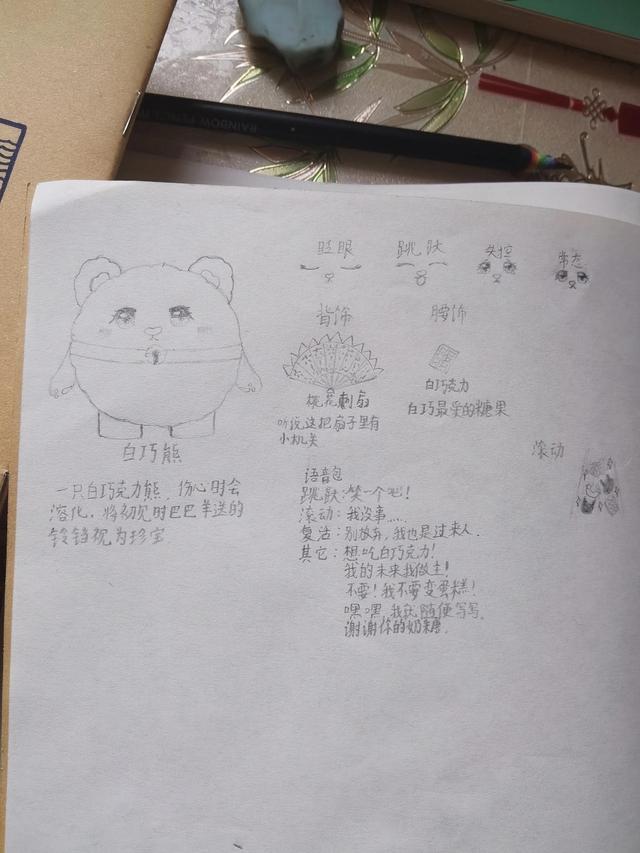 RAINBOW PENCIL
眨眼
跳跃
失控
常态
背饰
腰饰
白巧克力
桃花刺扇
白巧最爱的糖果
听说这把扇子里有
小机关
白巧熊
滚动
一只白巧克力熊,伤心时会
溶化,将初见时巴巴羊送的
铃铛视为珍宝.
语音包
跳跃:笑一个吧!
滚动:我没事……
复活:别放弃,我也是过来人.
其它:想吃白巧克力!
我的未来我做主!
不要!我不要变蛋糕!
嘿嘿,我就随便写写.
谢谢你的奶糖.